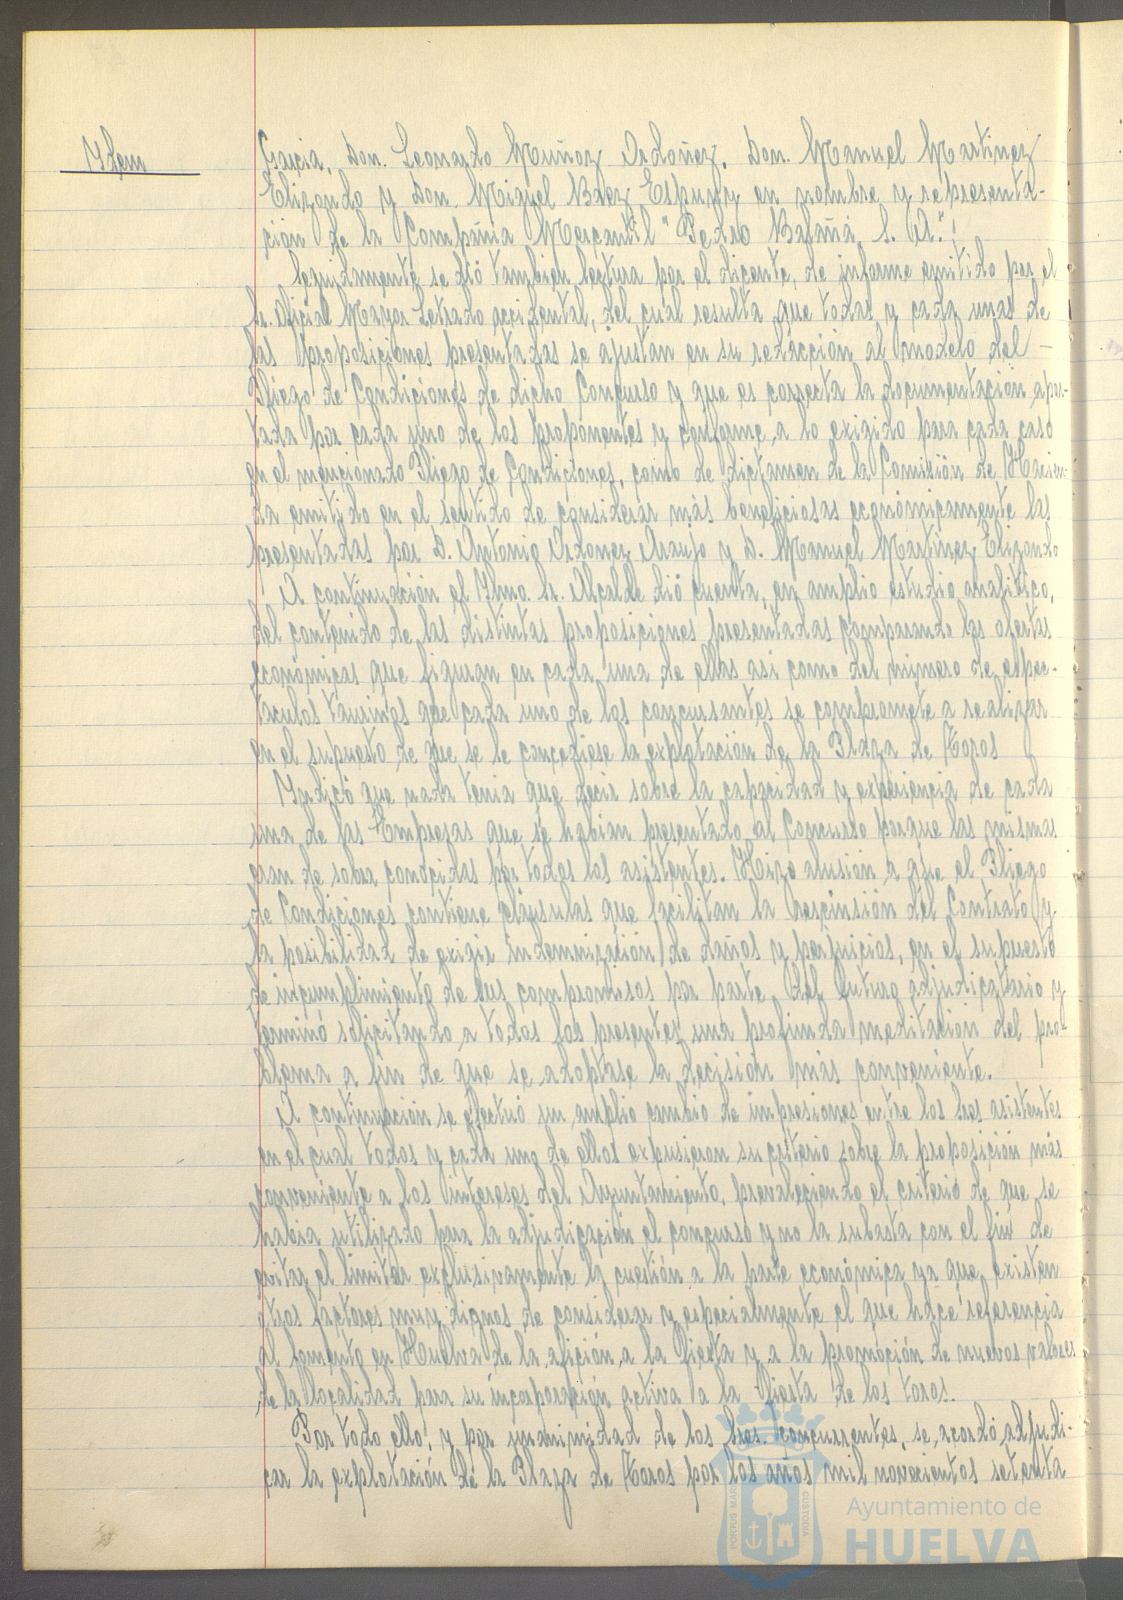 Ydem
Garcia, Don. Leonardo Muñoz Ordoñez, Don. Manuel Martinez
Elizondo y Don. Miguel Baez Espuny en nombre y representa-
ción de la Compañia Mercantil "Pedro Balañá, S. A.".
Seguidamente se dió tambien lectura por el dicente, de informe emitido por el
Sr. Oficial Mayor Letrado accidental, del cual resulta que todas y cada unas de
las proposiciones presentadas se ajustan en su redacción al modelo del -
Pliego de Condiciones de dicho Concurso y que es correcta la documentación apor-
tada por cada uno de los proponentes y conforme a lo exigido para cada caso
en el mencionado Pliego de Condiciones, como de dictamen de la Comisión de Hacien-
da emitido en el sentido de considerar más beneficiosas económicamente las
presentadas por D. Antonio Ordonez Araujo y D. Manuel Martinez Elizondo
A continuación el Ylmo. Sr. Alcalde dió cuenta, en amplio estudio analitico,
del contenido de las distintas proposiciones presentadas comparando las ofertas
económicas que figuran en cada una de ellas asi como del número de espec-
taculos taurinos que cada uno de los concursantes se compromete a realizar
en el supuesto de que se le concediese la explotación de la Plaza de Toros
Yndicó que nada tenia que decir sobre la capacidad y experiencia de cada
una de las Empresas que se habian presentado al Concurso porque las mismas
eran de sobra conocidas por todos los asistentes. Hizo alusión a que el Pliego
de Condiciones contiene cláusulas que facilitan la rescinsión del Contrato y
la posibilidad de exigir indemnización de daños y perjuicios, en el supuesto
de incumplimiento de sus compromisos por parte del futuro adjudicatario y
terminó solicitando a todos los presentes una profunda meditación del pro-
blema a fin de que se adoptase la decisión más conveniente.
A continuación se efectuó un amplio cambio de impresiones entre los Sres asistentes
en el cual todos y cada uno de ellos expusieron su criterio sobre la proposición más
conveniente a los intereses del Ayuntamiento, prevaleciendo el criterio de que se
habia utilizado para la adjudicación el concurso y no la subasta con el fin de
evitar el limitar exclusivamente la cuestión a la parte económica ya que existen
otros factores muy dignos de considerar y especialmente el que hace referencia
al fomento en Huelva de la afición a la Fiesta y a la promoción de nuevos valores
de la localidad para su incorporación activa a la Fiesta de los toros.
Por todo ello, y por unanimidad de los Sres. concurrentes, se acordó adjudi-
car la explotación de la Plaza de Toros por los años mil novecientos setenta
PORTUS MARIS
CUSTODIA
Ayuntamiento de
HUELVA